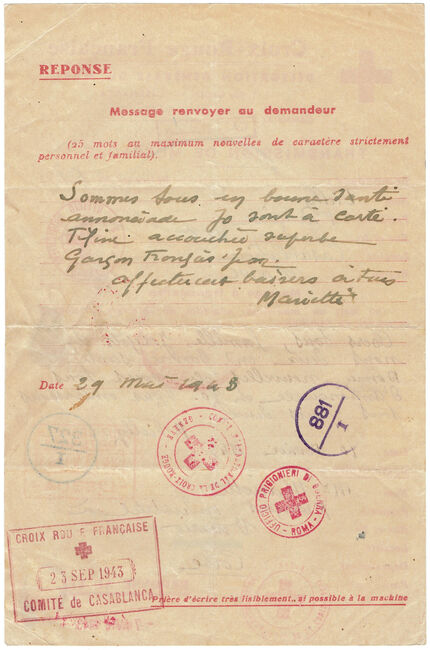 REPONSE
Message renvoyer au demandeur
(25 mots au maximum nouvelles de caractère strictement
personnel et familial).
Sommes tous en bonne santé
annonciade Jo sont à
accouchée superbe
Garçon François Jean
affectueux baisers à tous
Mariette
Date 29 Mai 1943
881
I
327
I
COMITÉ INTERNATIONAL DE LA CROIX-ROUGE - GENÈVE
UFFICIO PRIGIONIERI DI GUERRA - ROMA -
CROIX ROU E FRANÇAISE
23 SEP 1943
COMITÉ de CASABLANCA
Prière d'écrire très lisiblement, si possible à la machine